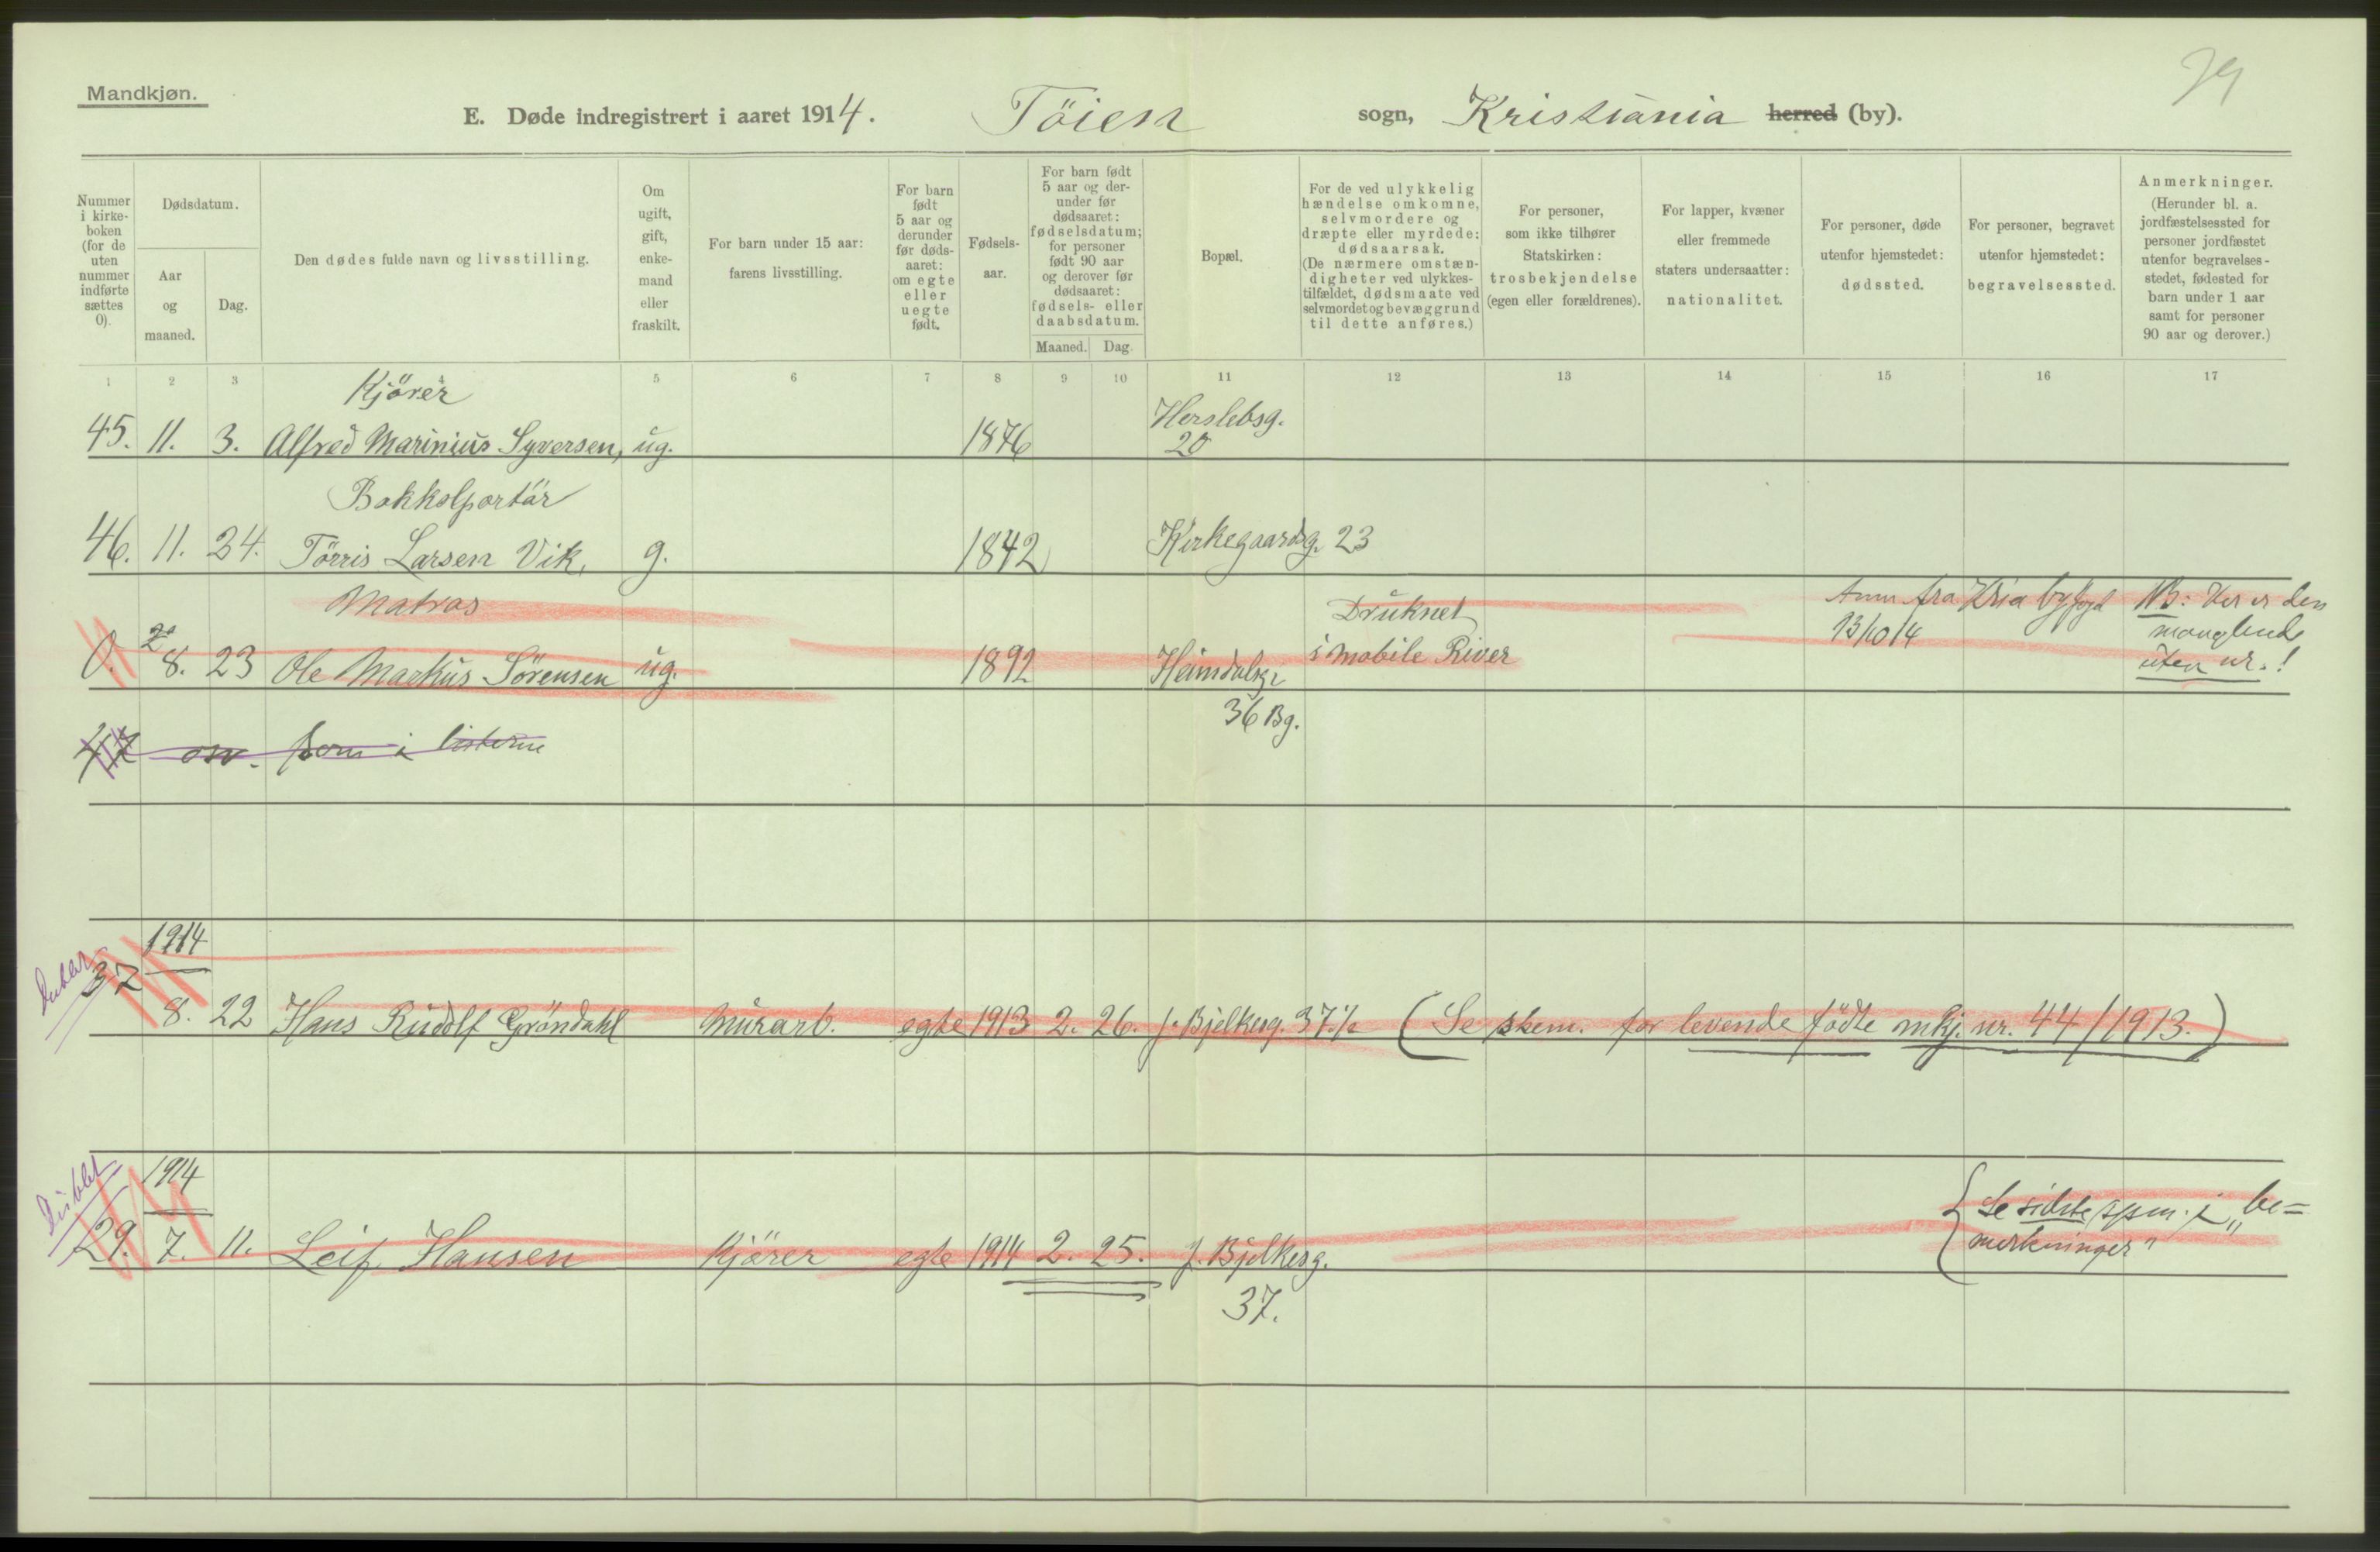 Mandkjøn.
79
E. Døde indregistrert i aaret 1914. Töien sogn, Kristiania herred (by).
Nummer i kirke-boken (for de uten nummer indførte sættes 0).
Dødsdatum.
Aar og maaned.
Dag.
Den dødes fulde navn og livsstilling.
Om ugift, gift, enke-mand eller fraskilt.
For barn under 15 aar: farens livsstilling.
For barn født 5 aar og derunder før døds-aaret: om egte eller uegte født.
Fødsels-aar.
For barn født 5 aar og der-under før dødsaaret: fødselsdatum; for personer født 90 aar og derover før dødsaaret: fødsels- eller daabsdatum.
Maaned. Dag.
Bopæl.
For de ved ulykkelig hændelse omkomne, selvmordere og dræpte eller myrdede: dødsaarsak. (De nærmere omstæn-digheter ved ulykkes-tilfældet, dødsmaate ved selvmordet og bevæggrund til dette anføres.)
For personer, som ikke tilhører Statskirken: trosbekjendelse (egen eller forældrenes).
For lapper, kvæner eller fremmede staters undersaatter: nationalitet.
For personer, døde utenfor hjemstedet: dødssted.
For personer, begravet utenfor hjemstedet: begravelsessted.
Anmerkninger. (Herunder bl. a. jordfæstelsessted for personer jordfæstet utenfor begravelses-stedet, fødested for barn under 1 aar samt for personer 90 aar og derover.)
1 2 3 4 5 6 7 8 9 10 11 12 13 14 15 16 17
Kjörer
45. 11. 3. Alfred Marinius Syversen, ug. 1876 Herslebsg. 20
Bokkolportör
46. 11. 24. Törris Larsen Vik, g. 1842 Kirkegaardsg. 23
Matros
0. 8. 23 Ole Markus Sörensen ug. 1892 Heimdalsg. 36 Bg. Druknet i Mobile River
Anm. fra Kria byfogd 13/10 14
NB: Her er den manglende uten nr.!
47 osv. som i listerne
Dublet
37 1914 8. 22 Hans Rudolf Gröndahl Murarb. egte 1913 2. 26. J. Bjelkesg. 37 1/2 (Se skem. for levende födte mkj. nr. 44/1913.)
Dublet
29. 1914 7. 11. Leif Hansen Kjörer egte 1914 2. 25. J. Bjelkesg. 37.
Se sidste spm. i „be=
merkninger"